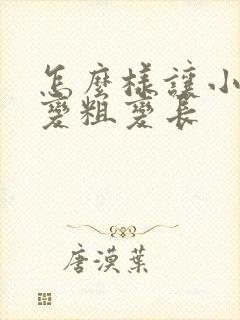 怎麼樣讓小
變粗變長
唐漠葉